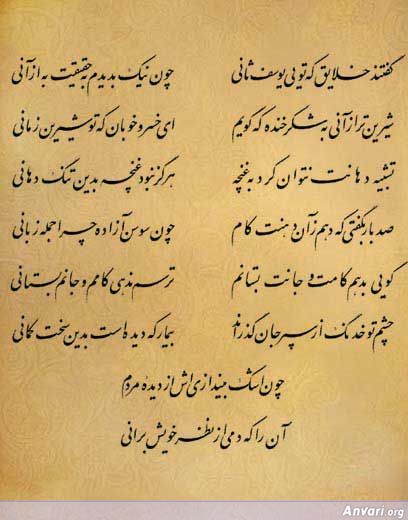 گفتند خلایق که تویی یوسف ثانی چون نیک بدیدم به حقیقت به از آنی
شیرین تر از آنی به شکر خنده که گویم ای خسرو خوبان که تو شیرین زمانی
تشبیه دهانت نتوان کرد به غنچه هرگز نبود غنچه بدین تنگ دهانی
صد بار بگفتی که دهم زآن دهنت کام چون سوسن آزاده چرا جمله زبانی
گویی بدهم کامت و جانت بستانم ترسم ندهی کامم و جانم بستانی
چشم تو خدنگ از سپر جان گذراند بیمار که دیده است بدین سخت کمانی
چون اشک بیندازی اش از دیده مردم
آن را که دمی از نظر خویش برانی
Anvari.org